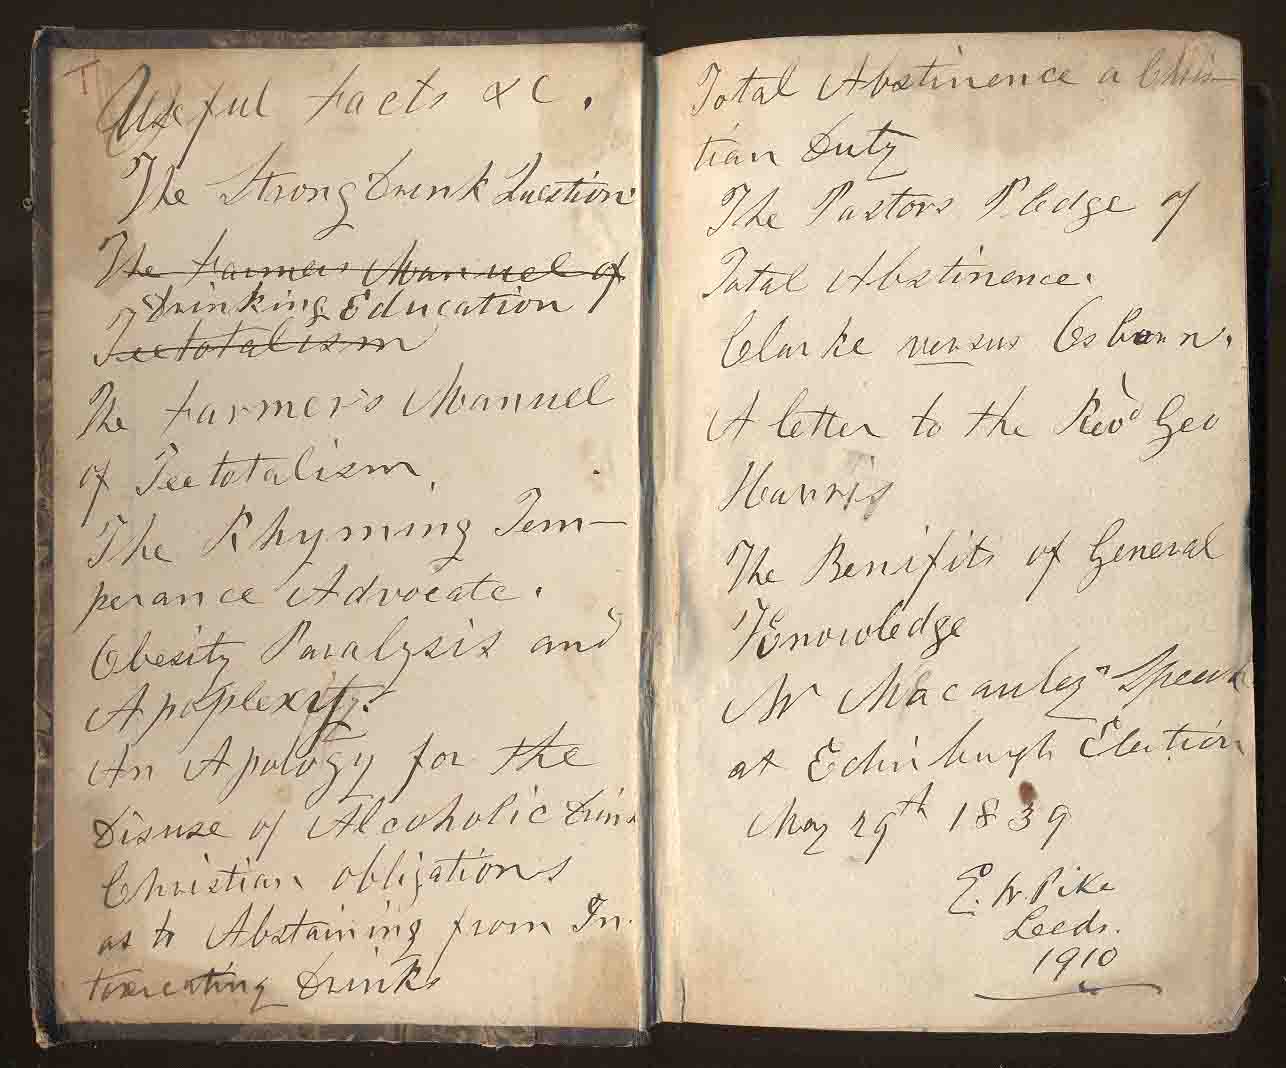 T
Useful Facts &C.
The Strong Drink Question
The Farmers Manuel of
Drinking Education
Teetotalism
The Farmer's Manuel
of Teetotalism
The Rhyming Tem-
perance Advocate.
Obesity Paralysis and
Apoplexity.
An Apology for the
Disuse of Alcoholic Drin
Christian obligations
as to Abstaining from In
toxicating Drinks
Total Abstinence a Chris-
tian Duty
The Pastors Pledge of
Total Abstinence.
Clarke versus Osborn.
A letter to the Revd Geo
Harris
The Benifits of General
Knowledge
Mr Macauley's Speech
at Edinburgh Election
May 29th 1839
E. W Pike
Leeds.
1910